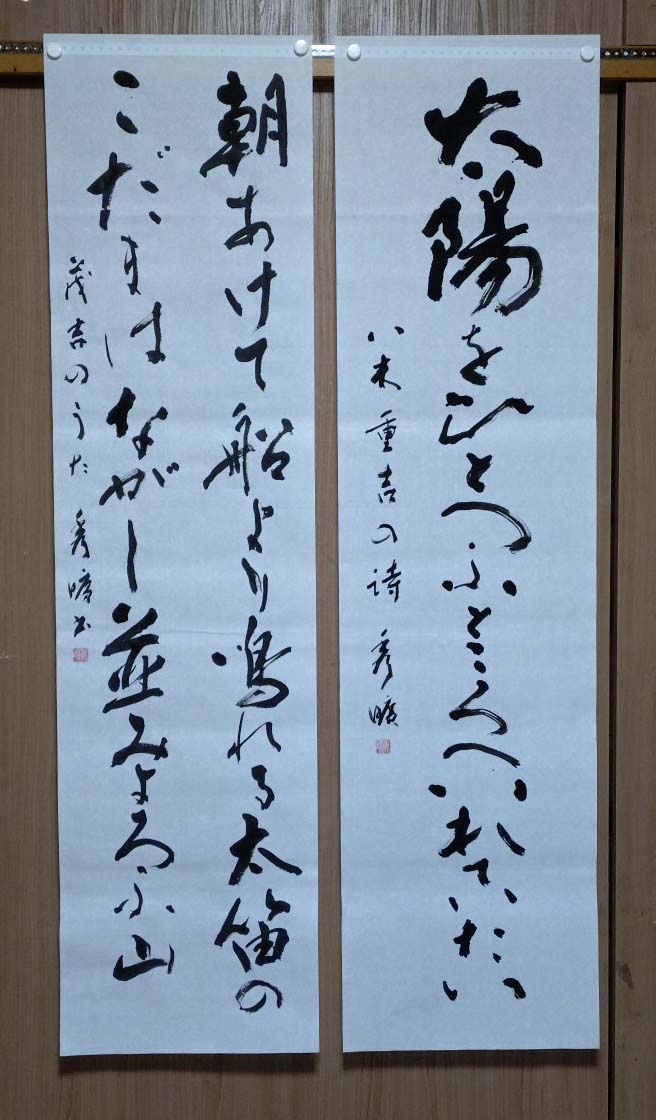 太陽をひとつふところへいれていたい
八木重吉の詩 秀曠
朝あけて船より鳴れる太笛の
こだまはながし並みよろふ山
茂吉のうた 秀曠書